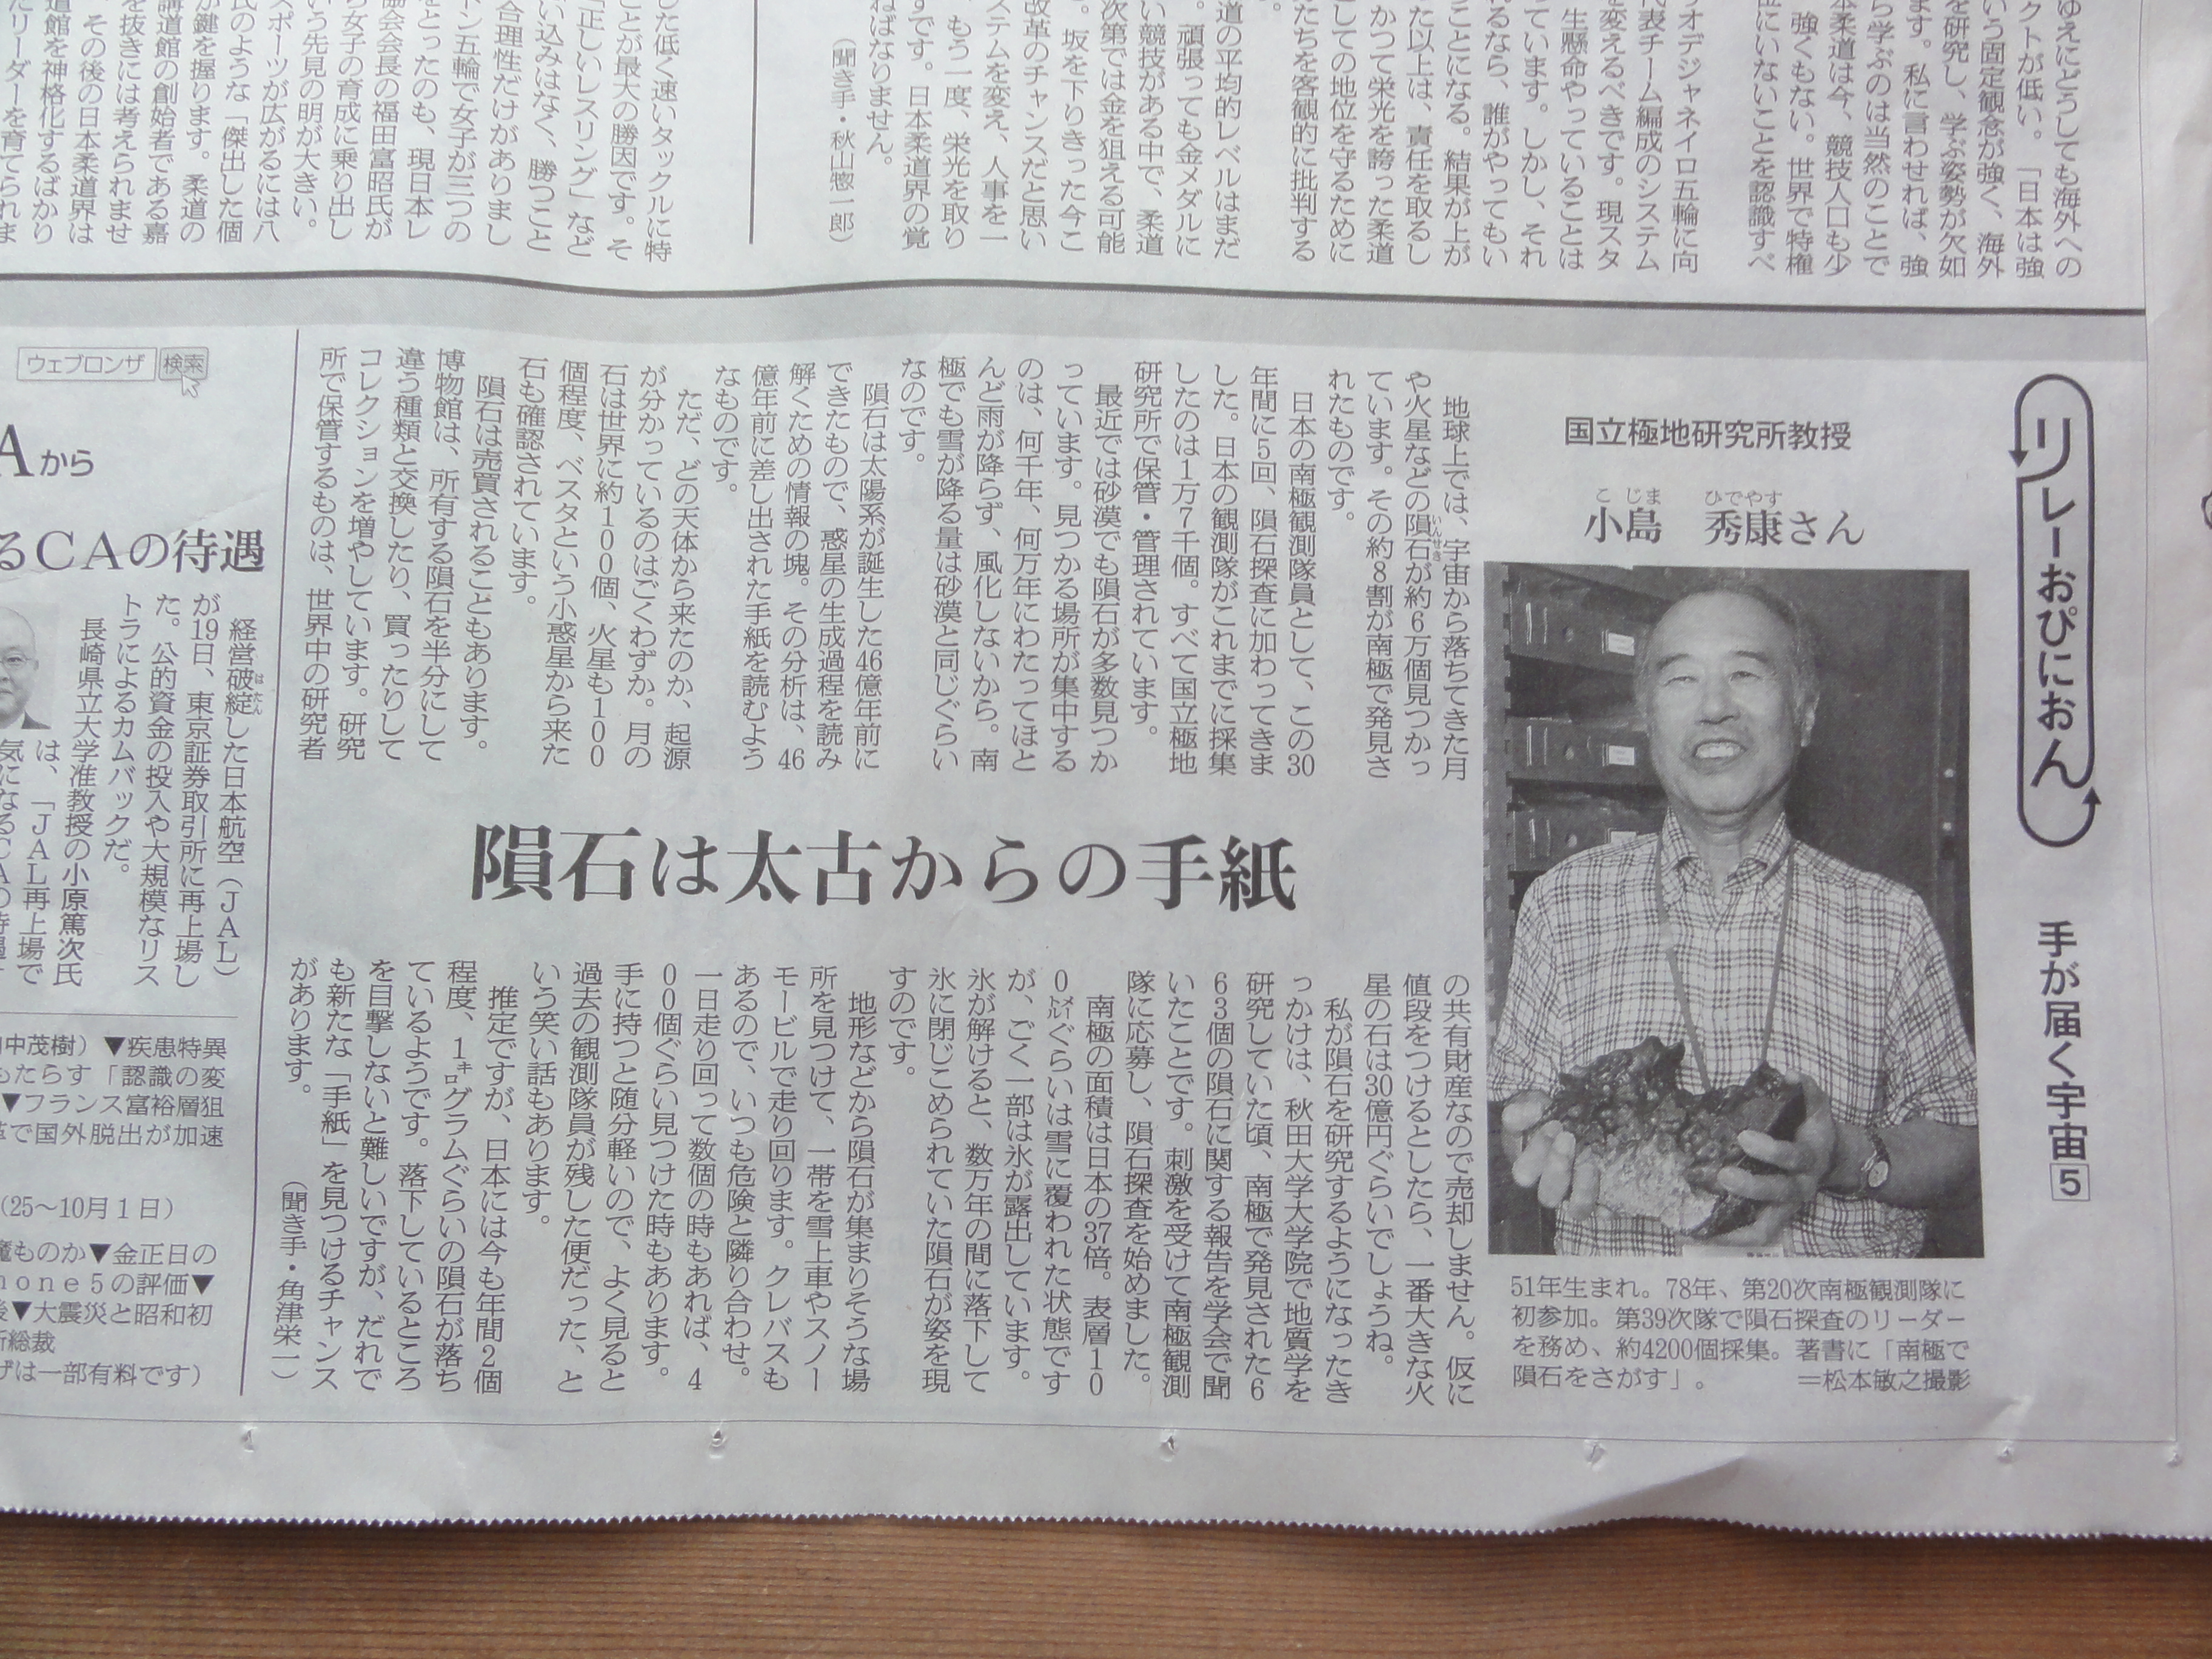 ゆえにどうしても海外への
クトが低い。「日本は強
いう固定観念が強く、海外
を研究し、学ぶ姿勢が欠如
ます。私に言わせれば、強
ら学ぶのは当然のことで
本柔道は今、競技人口も少
強くもない。世界で特権
位にいないことを認識すべ
オデジャネイロ五輪に向
代表チーム編成のシステム
を変えるべきです。現スタ
生懸命やっていることは
ています。しかし、それ
れるなら、誰がやってもい
ことになる。結果が上が
た以上は、責任を取るし
かつて栄光を誇った柔道
しての地位を守るために
たちを客観的に批判する
。
道の平均的レベルはまだ
。頑張っても金メダルに
い競技がある中で、柔道
次第では金を狙える可能
。坂を下りきった今こ
改革のチャンスだと思い
ステムを変え、人事を一
もう一度、栄光を取り
です。日本柔道界の覚
ねばなりません。
（聞き手・秋山惣一郎）
した低く速いタックルに特
ことが最大の勝因です。そ
「正しいレスリング」など
い込みはなく、勝つこと
合理性だけがありまし
ン五輪で女子が三つの
をとったのも、現日本レ
協会会長の福田富昭氏が
ら女子の育成に乗り出し
いう先見の明が大きい。
スポーツが広がるには八
氏のような「傑出した個
が鍵を握ります。柔道の
講道館の創始者である嘉
を抜きには考えられませ
その後の日本柔道界は
道館を神格化するばかり
たリーダーを育てられま
リレーおぴにおん
手が届く宇宙 5
国立極地研究所教授
こじま ひでやす
小島 秀康さん
51年生まれ。78年、第20次南極観測隊に
初参加。第39次隊で隕石探査のリーダー
を務め、約4200個採集。著書に「南極で
隕石をさがす」。 ＝松本敏之撮影
隕石は太古からの手紙
地球上では、宇宙から落ちてきた月
や火星などの隕石(いんせき)が約6万個見つかっ
ています。その約8割が南極で発見さ
れたものです。
日本の南極観測隊員として、この30
年間に5回、隕石探査に加わってきま
した。日本の観測隊がこれまでに採集
したのは1万7千個。すべて国立極地
研究所で保管・管理されています。
最近では砂漠でも隕石が多数見つか
っています。見つかる場所が集中する
のは、何千年、何万年にわたってほと
んど雨が降らず、風化しないから。南
極でも雪が降る量は砂漠と同じぐらい
なのです。
隕石は太陽系が誕生した46億年前に
できたもので、惑星の生成過程を読み
解くための情報の塊。その分析は、46
億年前に差し出された手紙を読むよう
なものです。
ただ、どの天体から来たのか、起源
が分かっているのはごくわずか。月の
石は世界に約100個、火星も100
個程度、ベスタという小惑星から来た
石も確認されています。
隕石は売買されることもあります。
博物館は、所有する隕石を半分にして
違う種類と交換したり、買ったりして
コレクションを増やしています。研究
所で保管するものは、世界中の研究者
の共有財産なので売却しません。仮に
値段をつけるとしたら、一番大きな火
星の石は30億円ぐらいでしょうね。
私が隕石を研究するようになったき
っかけは、秋田大学大学院で地質学を
研究していた頃、南極で発見された6
63個の隕石に関する報告を学会で聞
いたことです。刺激を受けて南極観測
隊に応募し、隕石探査を始めました。
南極の面積は日本の37倍。表層10
0㍍ぐらいは雪に覆われた状態です
が、ごく一部は氷が露出しています。
氷が解けると、数万年の間に落下して
氷に閉じこめられていた隕石が姿を現
すのです。
地形などから隕石が集まりそうな場
所を見つけて、一帯を雪上車やスノー
モービルで走り回ります。クレバスも
あるので、いつも危険と隣り合わせ。
一日走り回って数個の時もあれば、4
00個ぐらい見つけた時もあります。
手に持つと随分軽いので、よく見ると
過去の観測隊員が残した便だった、と
いう笑い話もあります。
推定ですが、日本には今も年間2個
程度、1㌔グラムぐらいの隕石が落ち
ているようです。落下しているところ
を目撃しないと難しいですが、だれで
も新たな「手紙」を見つけるチャンス
があります。
（聞き手・角津栄一）
ウェブロンザ 検索
Aから
るCAの待遇
経営破綻(はたん)した日本航空（JAL）
が19日、東京証券取引所に再上場し
た。公的資金の投入や大規模なリス
トラによるカムバックだ。
長崎県立大学准教授の小原篤次氏
は、「JAL再上場で
気になるCAの待遇
中茂樹）▼疾患特異
もたらす「認識の変
▼フランス富裕層狙
で国外脱出が加速
（25～10月1日）
魔ものか▼金正日の
hone5の評価▼
後▼大震災と昭和初
新総裁
ザは一部有料です）